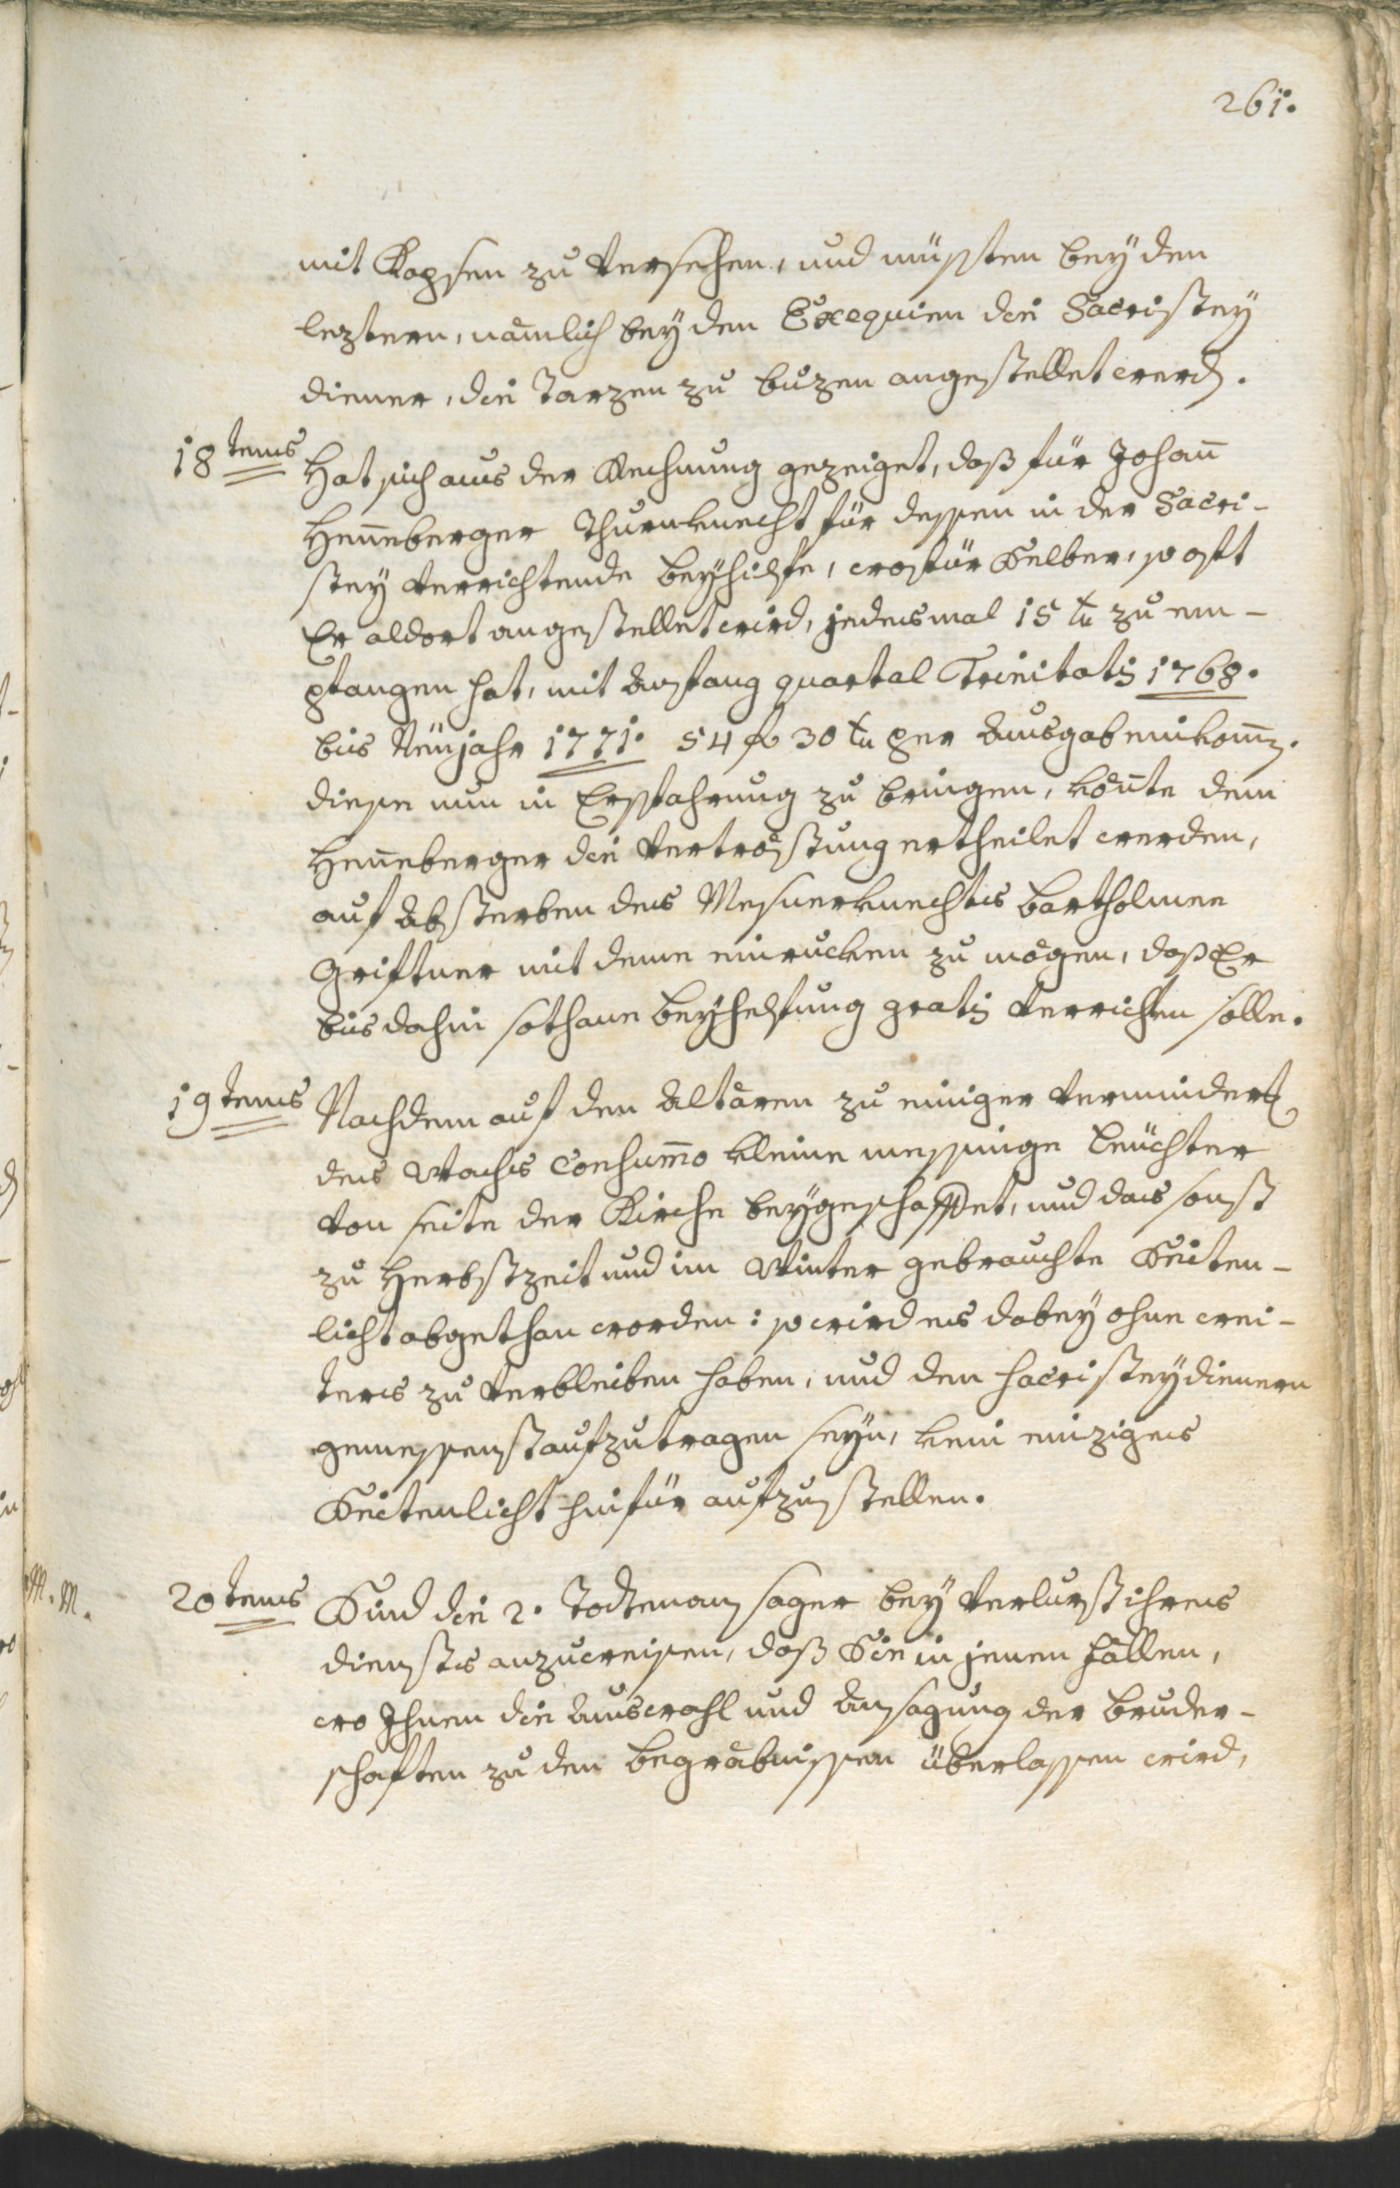 261.
mit Kapsen zu versehen, und müssten bey den
leztern, nämlich bey den Exequien die Sacristey
diener, die Tarzen zu buzen angestellet werd.
18tens Hat sich aus der Rechnung gezeiget, daß für Johan̄
Hen̄eberger Thurnknecht für dessen in der Sacri-
stey verrichtende Beyhilfe, wofür Selber, so oft
Er aldort angestellet wird, jedesmal 15 xr zu em-
pfangen hat, mit Anfang quartal Trinitatis 1768.
bis Neujahr 1771. 54 fl 30 xr per Ausgab einkom̄.
diese nun in Ersparung zu bringen, kön̄te dem
Hen̄eberger die Vertröstung ertheilet werden,
auf Absterben des Messnerknechts Bartholmee
Griftner mit deme einrucken zu mögen, daß Er
bis dahin sothane Beyhelfung gratis verrichten solle.
19tens Nachdem auf den Altären zu einiger Verminder
des Wachs Consum̄o kleine messinge Leuchter
von seite der Kirche beygeschaffet, und das sonst
zu Herbstzeit und im Winter gebrauchte Seiten-
licht abgethan worden: so wird es dabey ohne wei-
ters zu verbleiben haben, und den Sacristeydienern
gemessenst aufzutragen seyn, kein einziges
Seitenlicht hinfür aufzustellen.
20tens Sind die 2. Todtenansager bey Verlurst ihres
diensts anzuweisen, daß Sie in jenen Fällen,
wo Ihnen die Auswahl und Ansagung der Bruder-
schaften zu den Begräbnissen überlassen wird,
M. M.